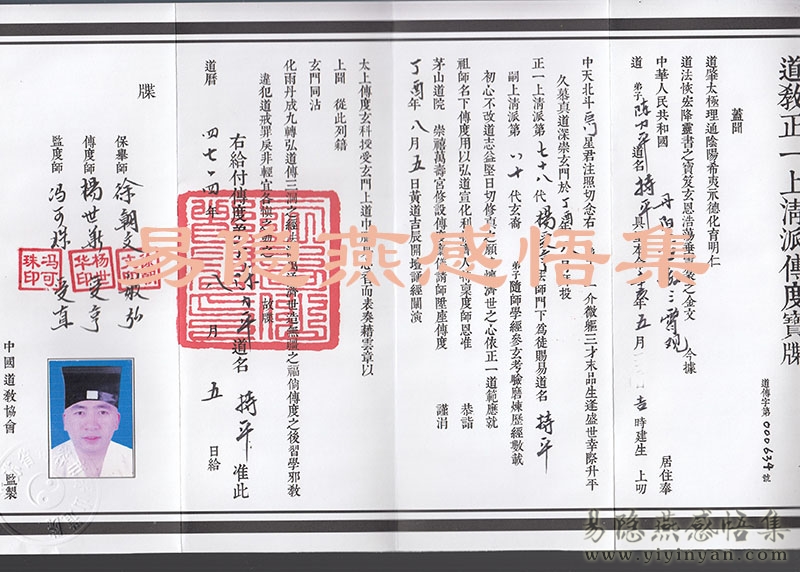 道教正一上清派傳度寶牒
道傳字第000634號
蓋聞
道肇太極理通陰陽希夷示德化育明仁
道法恢宏降靈書之寶笈玄恩浩蕩垂
之金文
中華人民共和國
居住奉
今據
道
弟子
道名
持平
年五月
吉時建生
上叨
中天北斗
星君注照切念
一介微軀三才末品生逢盛世幸際昇平
久慕真道深崇玄門於丁酉年
正一上清派第七十八代楊
師門下為徒賜易道名持平
嗣上清派第八十代玄裔
弟子隨師學經參玄考驗磨煉歷經數載
初心不改道志益堅日切修真之願
濟世之心依正一道範應就
祖師名下傳度用以弘道宣化利
人
稟度師恩准
恭詣
茅山道院
崇禧萬壽宮修設傳度
請師陞座傳度
謹涓
丁酉年八月五日黃道吉辰開壇
經闡演
太上傳度玄科授受玄門上道中
而表奏藉雲章以
上聞
從此列籍
玄門同沾
化雨丹成九轉弘道傳三洞之經
濟世造無疆之福倘傳度之後習學邪教
違犯道戒罪戾非輕宜各
故牒
右給付傳度
平道名
持平
准此
道曆
四七一四年
八月
五
日給
牒
保舉師
徐朝文
敏弘
傳度師
楊世華
監度師
馮可珠
楊世华印
冯可珠印
中國道教協會
監製
易隐燕感悟集
易隐燕感悟集
www.yiyinyan.com